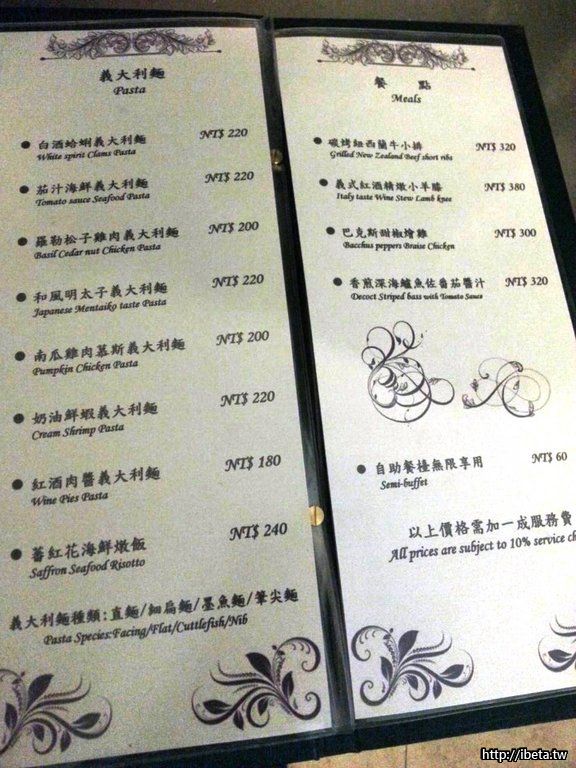 義大利麵
Pasta
白酒蛤蜊義大利麵 NT$ 220
White spirit Clams Pasta
茄汁海鮮義大利麵 NT$ 220
Tomato sauce Seafood Pasta
羅勒松子雞肉義大利麵 NT$ 200
Basil Cedar nut Chicken Pasta
和風明太子義大利麵 NT$ 220
Japanese Mentaiko taste Pasta
南瓜雞肉慕斯義大利麵 NT$ 200
Pumpkin Chicken Pasta
奶油鮮蝦義大利麵 NT$ 220
Cream Shrimp Pasta
紅酒肉醬義大利麵 NT$ 180
Wine Pies Pasta
蕃紅花海鮮燉飯 NT$ 240
Saffron Seafood Risotto
義大利麵種類:直麵/細扁麵/墨魚麵/筆尖麵
Pasta Species:Facing/Flat/Cuttlefish/Nib
餐 點
Meals
碳烤紐西蘭牛小排 NT$ 320
Grilled New Zealand Beef short ribs
義式紅酒精燉小羊膝 NT$ 380
Italy taste Wine Stew Lamb knee
巴克斯甜椒燴雞 NT$ 300
Bacchus peppers Braise Chicken
香煎深海鱸魚佐番茄醬汁 NT$ 320
Decoct Striped bass with Tomato Sauce
自助餐檯無限享用 NT$ 60
Semi-buffet
以上價格需加一成服務費
All prices are subject to 10% service ch
http://ibeta.tw